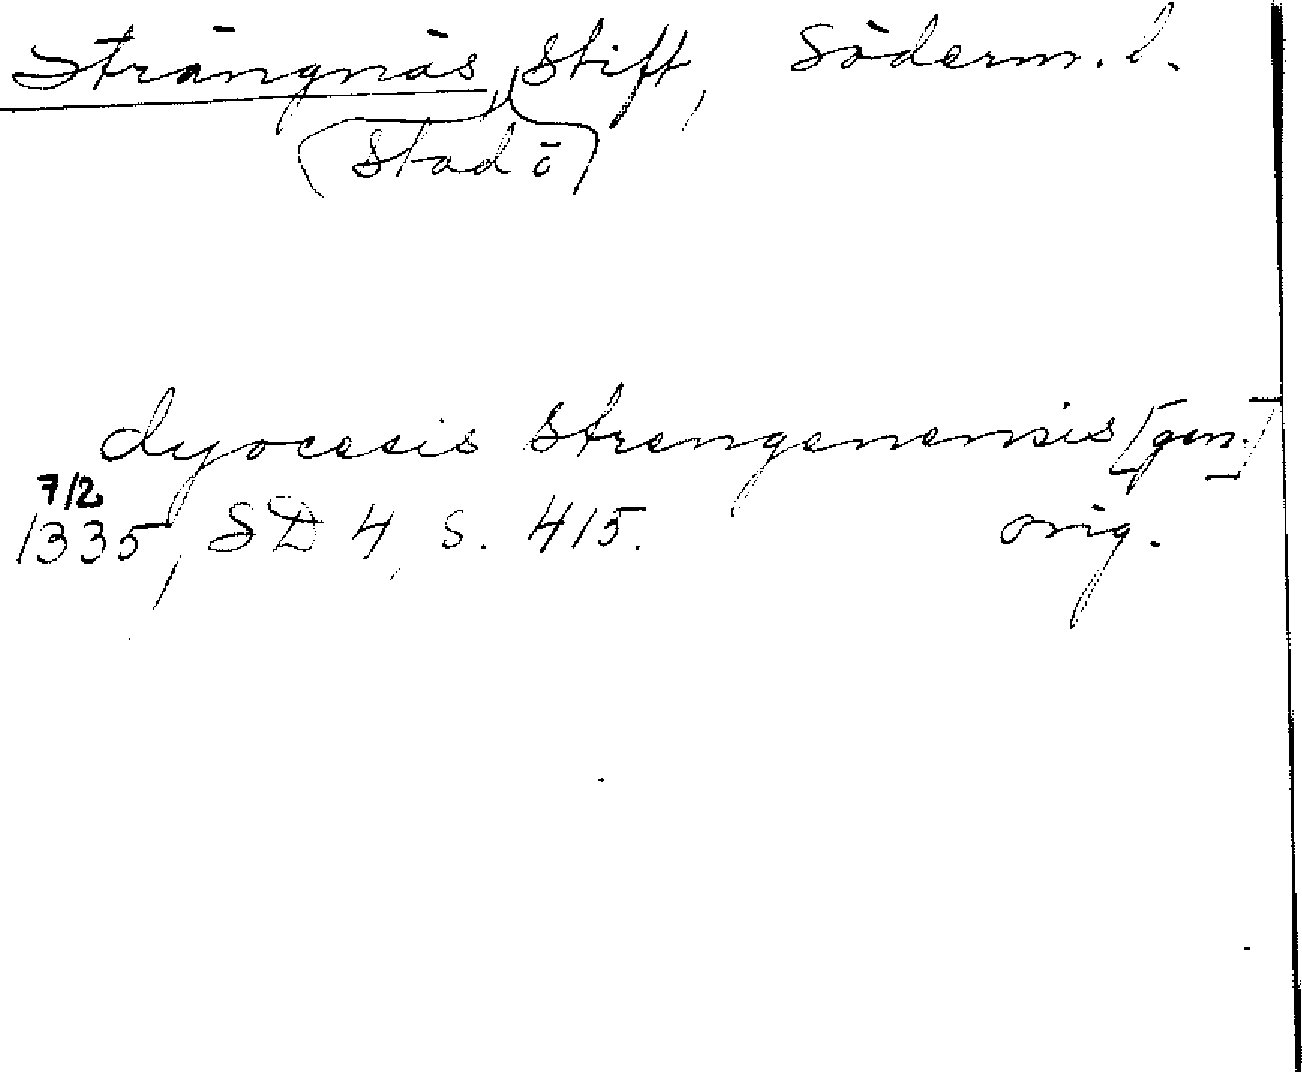 Strängnäs Stift, Söderm. l.
(Stad o)
dyocesis Strengenensis [gen.]
7/2
1335, SD 4, s. 415. orig.